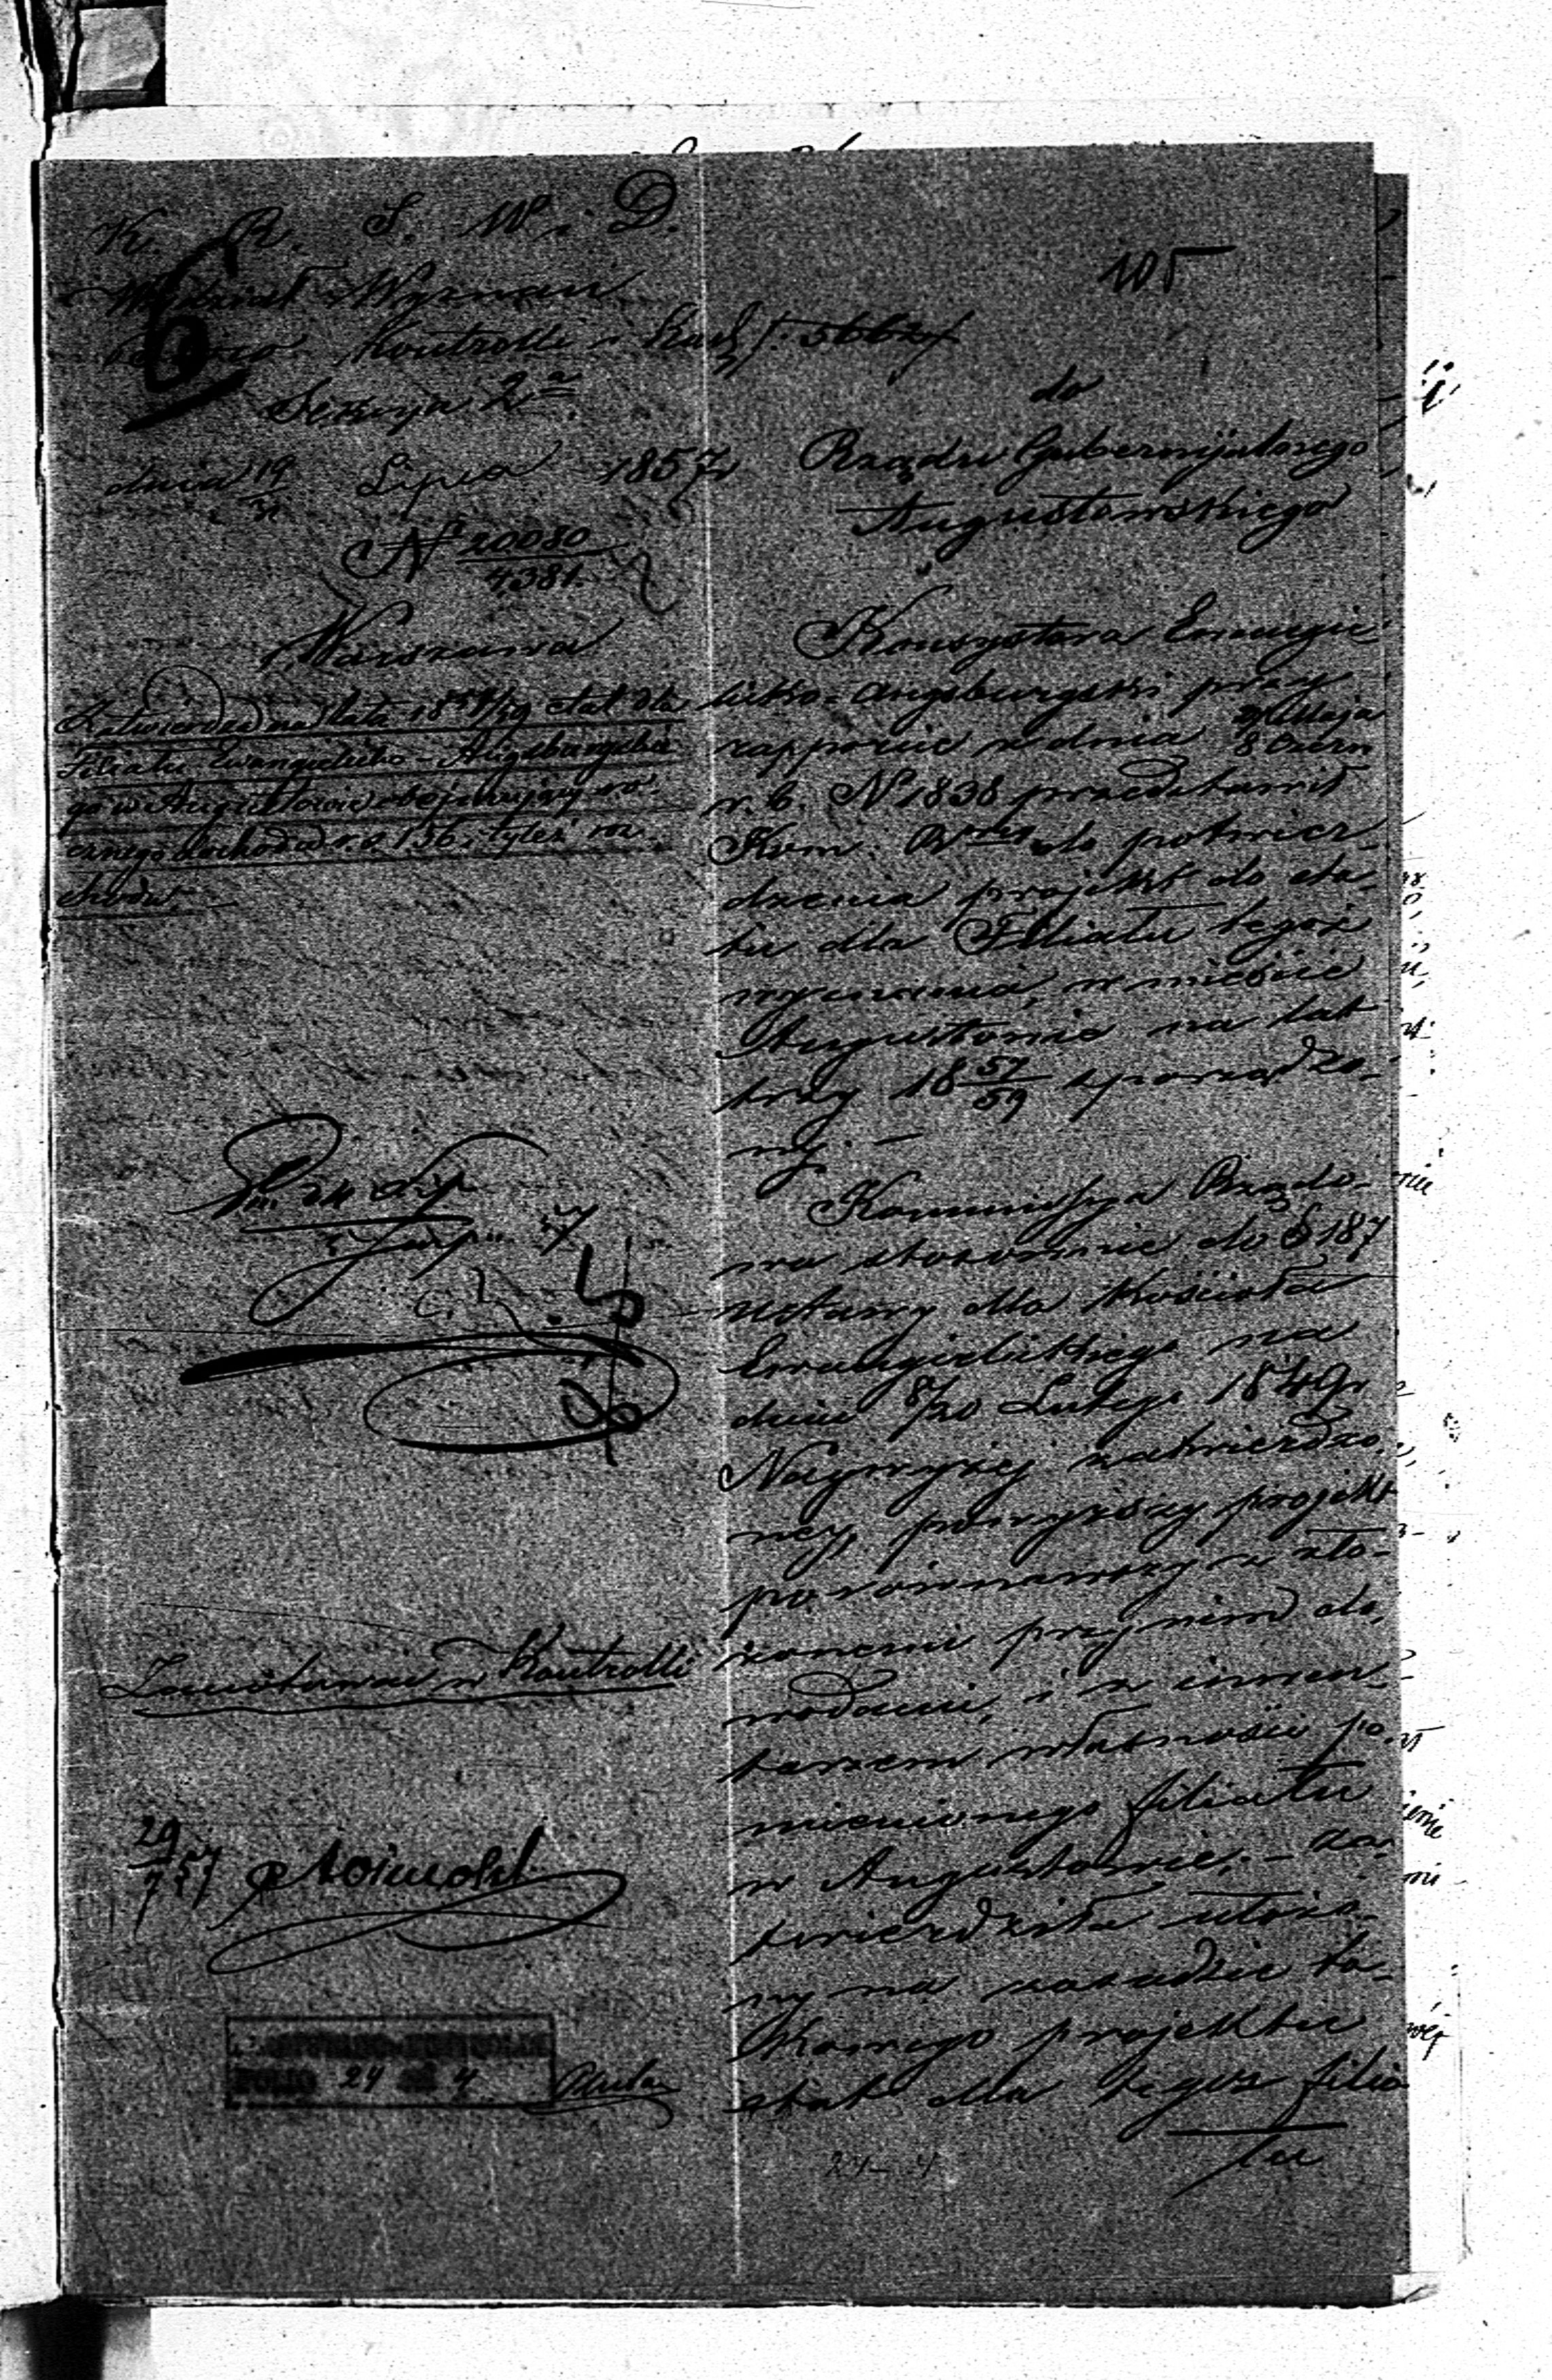 K. R. S. W. i D.
Wydział Wyznań
Kontrolli i Kass
Sekcya 2a
dnia 19 Lipca 1857 r
No 20080/4381.
Warszawa
Zatwierdza na lata 1857/59 etat dla
Filiału Ewangelicko-Augsburgskie
go w Augustowie obejmujący ro
cznego dochodu r.s. 136. tyleż roz
chodu
Zanotować w Kontrolli
29/7 57
24 4
105
do
Rządu Gubernijalnego
Augustowskiego
Konsystorz Ewangie
licko-Augsburgski przy
rapporcie z dnia 27 Maja/8 Czerw
r. b. No 1838 przedstawił
Kom. Rząd. do potwier-
dzenia projekt do eta-
tu dla Filiału tegoż
wyznania, w mieście
Augustowie na lat
trzy 1857/59 sporządzo-
ny. —
Kommissya Rządo-
wa stosownie do § 187
ustawy dla Kościoła
Ewangielickiego na
dniu 8/20 Lutego 1849 r
Najwyżej zatwierdzo-
nej, powyższy projekt
porównawszy z zło-
żonemi przy nim do-
wodami, i z inwen-
tarzem własności po
mienionego filiału
w Augustowie, – za-
twierdziła ułożo-
ny na zasadzie ta-
kowego projektu
etat dla tegoż filia
łu
24–4